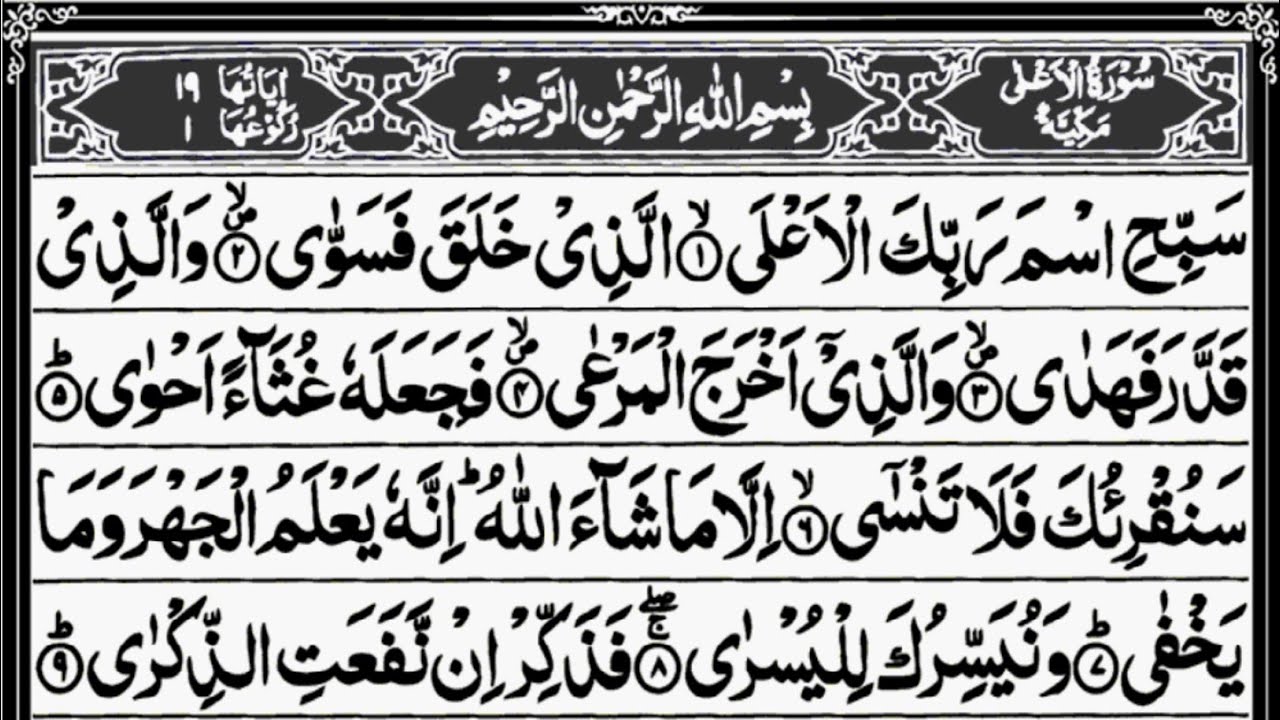 سُوْرَةُ الْاَعْلٰى مَكِّيَّةٌ
بِسْمِ اللّٰهِ الرَّحْمٰنِ الرَّحِيْمِ
اٰيَاتُهَا ١٩
رُكُوْعُهَا ١
سَبِّحِ اسْمَ رَبِّكَ الْاَعْلَى ۙ‏﴿۱﴾ الَّذِىْ خَلَقَ فَسَوّٰى ۪ۙ‏﴿۲﴾ وَالَّذِىْ
قَدَّرَ فَهَدٰى ۪ۙ‏﴿۳﴾ وَالَّذِىْۤ اَخْرَجَ الْمَرْعٰى ۪ۙ‏﴿۴﴾ فَجَعَلَهٗ غُثَآءً اَحْوٰى ؕ‏﴿۵﴾
سَنُقْرِئُكَ فَلَا تَنْسٰٓى ۙ‏﴿۶﴾ اِلَّا مَا شَآءَ اللّٰهُ‌ؕ اِنَّهٗ يَعْلَمُ الْجَهْرَ وَمَا
يَخْفٰى ؕ‏﴿۷﴾ وَنُيَسِّرُكَ لِلْيُسْرٰى ‌ۖۚ‏﴿۸﴾ فَذَكِّرْ اِنْ نَّفَعَتِ الذِّكْرٰى ؕ‏﴿۹﴾